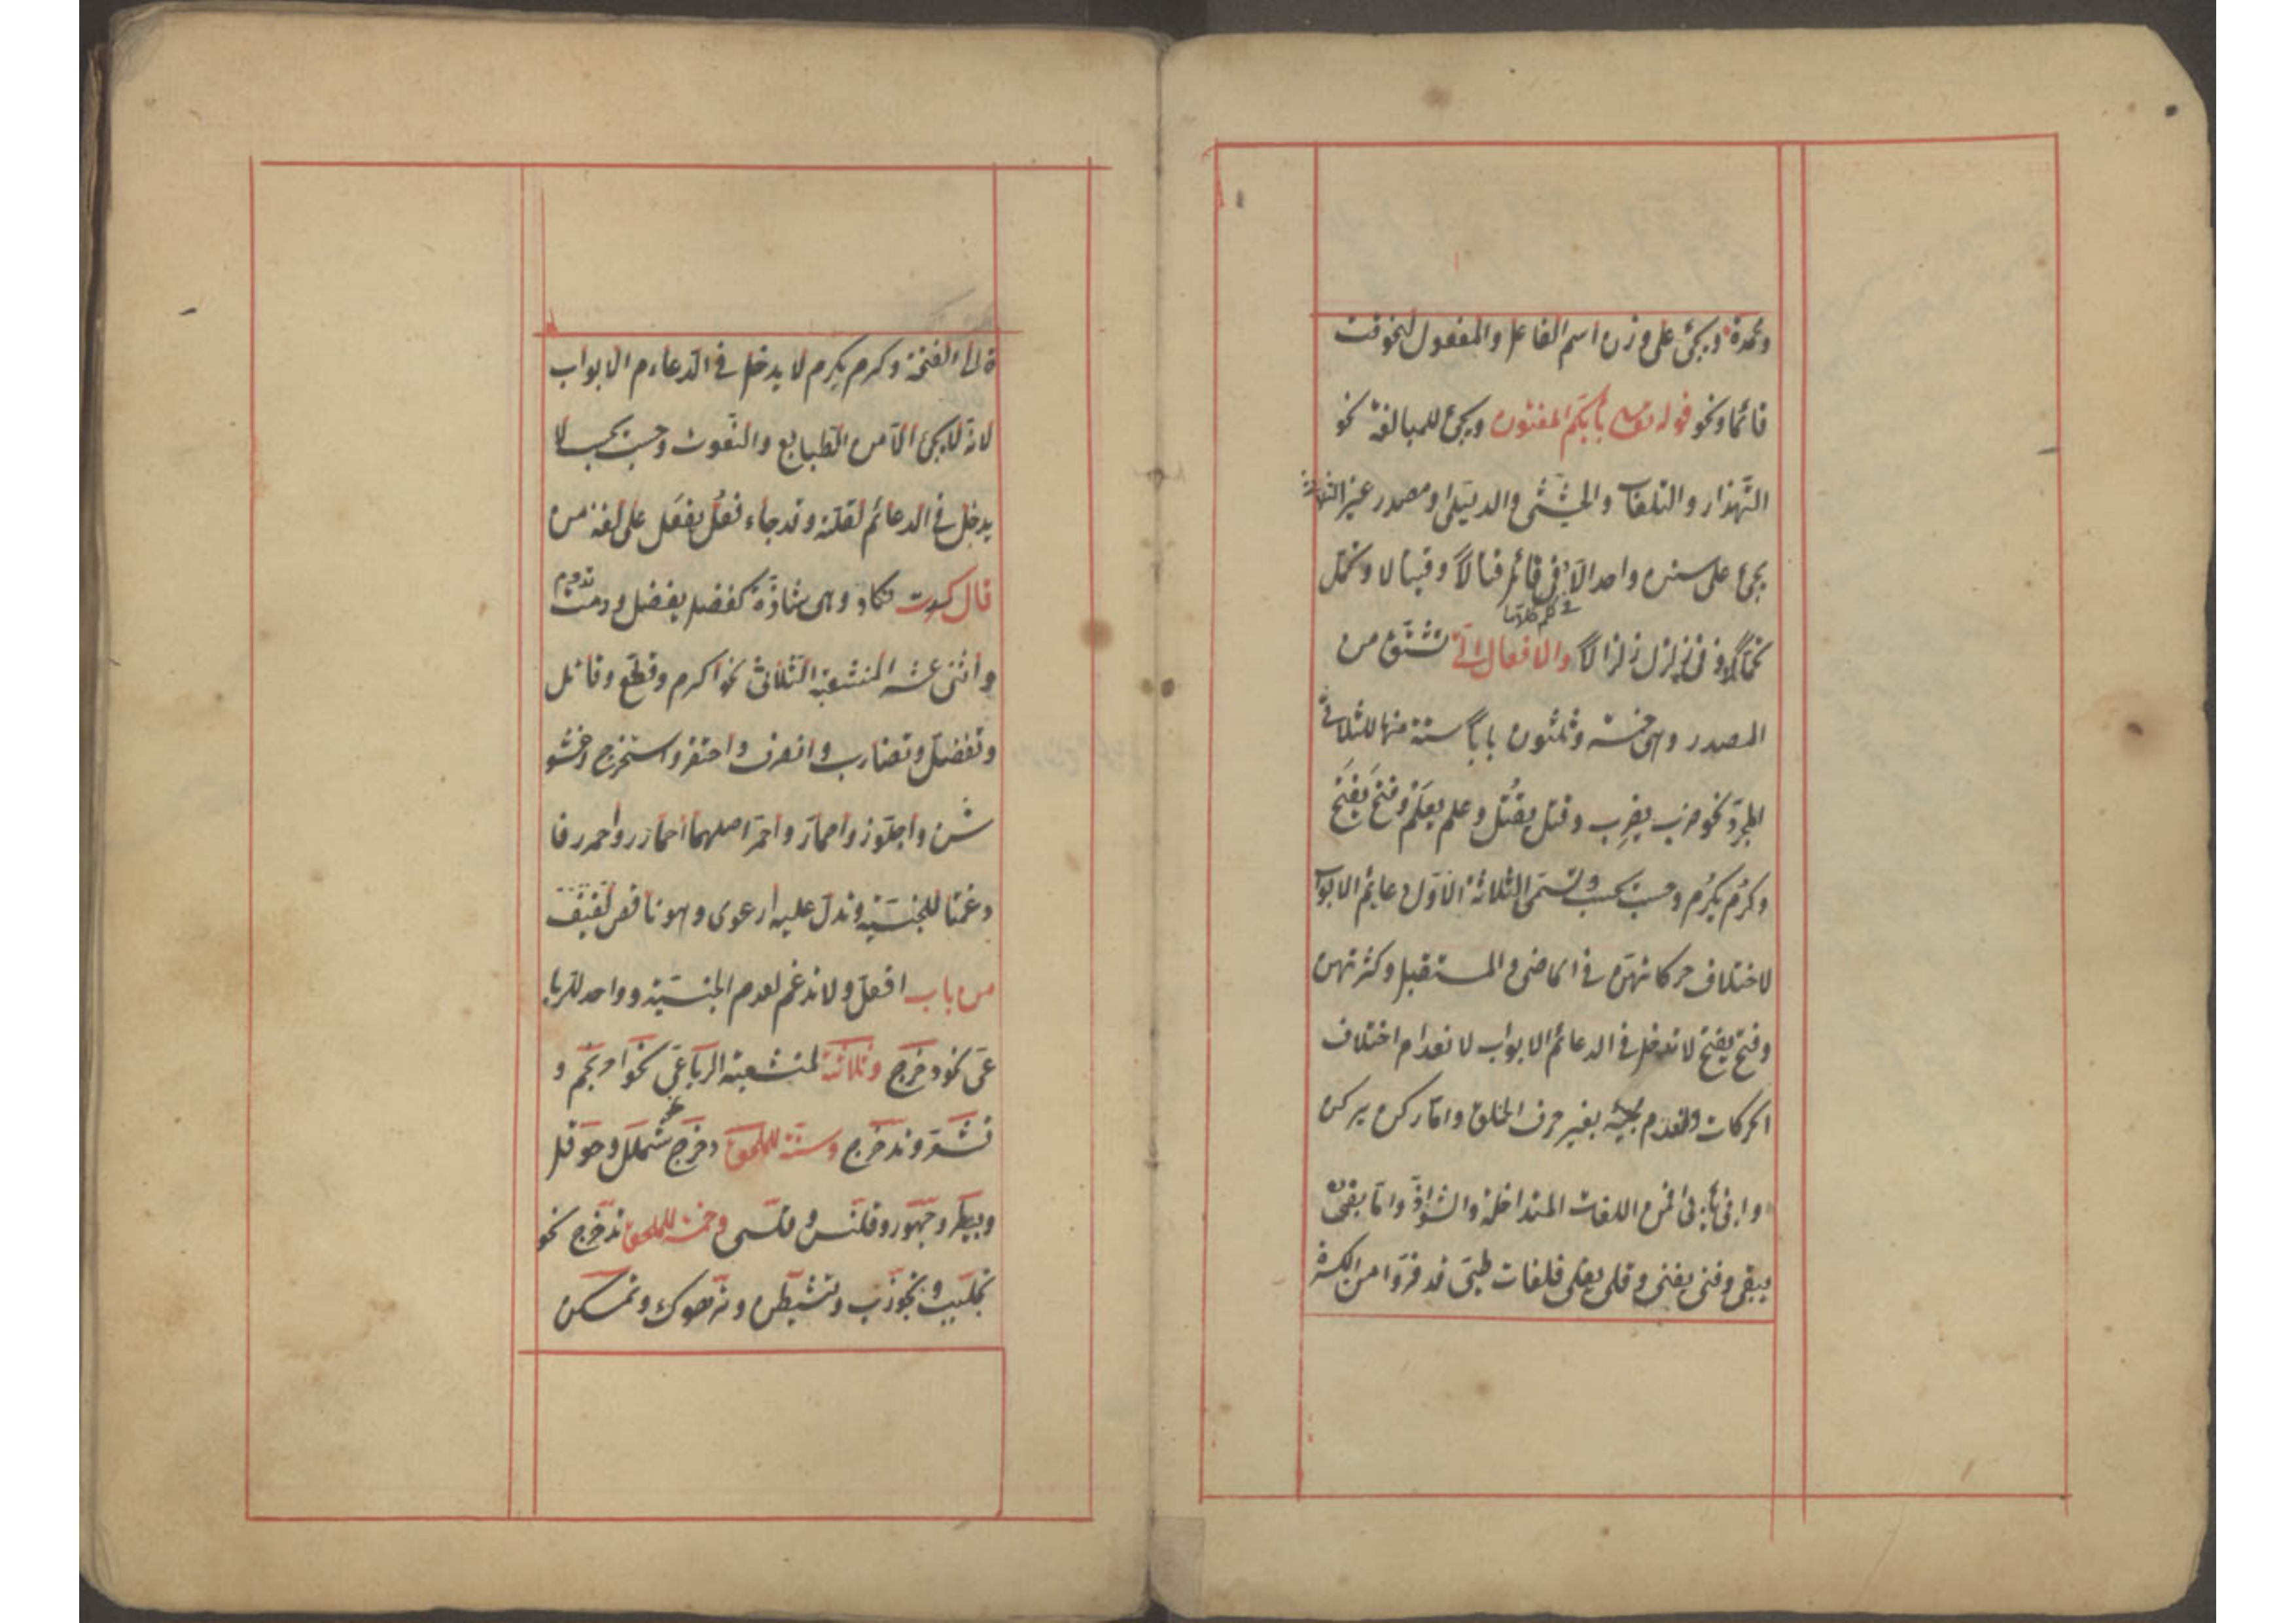 ومحمدة ويجئ على وزن اسم الفاعل والمفعول نحو قمت
قائما ونحو قوله تعالى بأيكم المفتون ويجئ للمبالغة نحو
التهذار والتلعاب والحثيثى والدليلى ومصدر غير الثلاثة
يجئ على سنن واحد الا في قاتل قتالا وقيتالا وتحمل
في كلم كلاما
تحمالا وفى زلزل زلزالا والافعال التى تشتق من
المصدر وهى خمسة وثلثون بابا ستة منها للثلاثى
المجرد نحو ضرب يضرب وقتل يقتل وعلم يعلم وفتح يفتح
وكرم يكرم وحسب يحسب وتسمى الثلاثة الاول دعايم الابواب
لاختلاف حركاتهن في الماضى والمستقبل وكثرتهن
وفتح يفتح لا تدخل في الدعائم الابواب لانعدام اختلاف
الحركات ولعدم مجيئه بغير حرف الحلق واما ركن يركن
وابى يأبى فمن اللغات المتداخلة والشواذ واما بقى
يبقى وفنى يفنى وقلى يقلى فلغات طيئ قد فروا من الكسرة
ة الى الفتحة وكرم يكرم لا يدخل في الدعاءم الابواب
لانه لا يجئ الا من الطبايع والنعوت وحسب يحسب لا
يدخل في الدعائم لقلته وقد جاء فعل يفعل على لغة من
قال كدت تكاد وهى شاذة كفضل يفضل ودمت تدوم
واثنى عشر المنشعبة الثلاثى نحو اكرم وقطع وقاتل
وتفضل وتضارب وانصرف واحتقر واستخرج واخشو
شن واجلوز واحمار واحمر اصلهما احمارر واحمرر فا
دغمتا للجنسية وتدل عليه ارعوى وهو ناقص لفيف
من باب افعل ولا تدغم لعدم الجنسية وواحد للربا
عى نحو دحرج وثلاثة لمنشعبة الرباعى نحو احرنجم و
قشعر وتدحرج وستة للملحق دحرج شملل وحوقل
وبيطر وجهور وقلنس وقلسى وخمسة للملحق تدحرج نحو
تجلبب وتجورب وتشيطن وترهوك وتمسكن